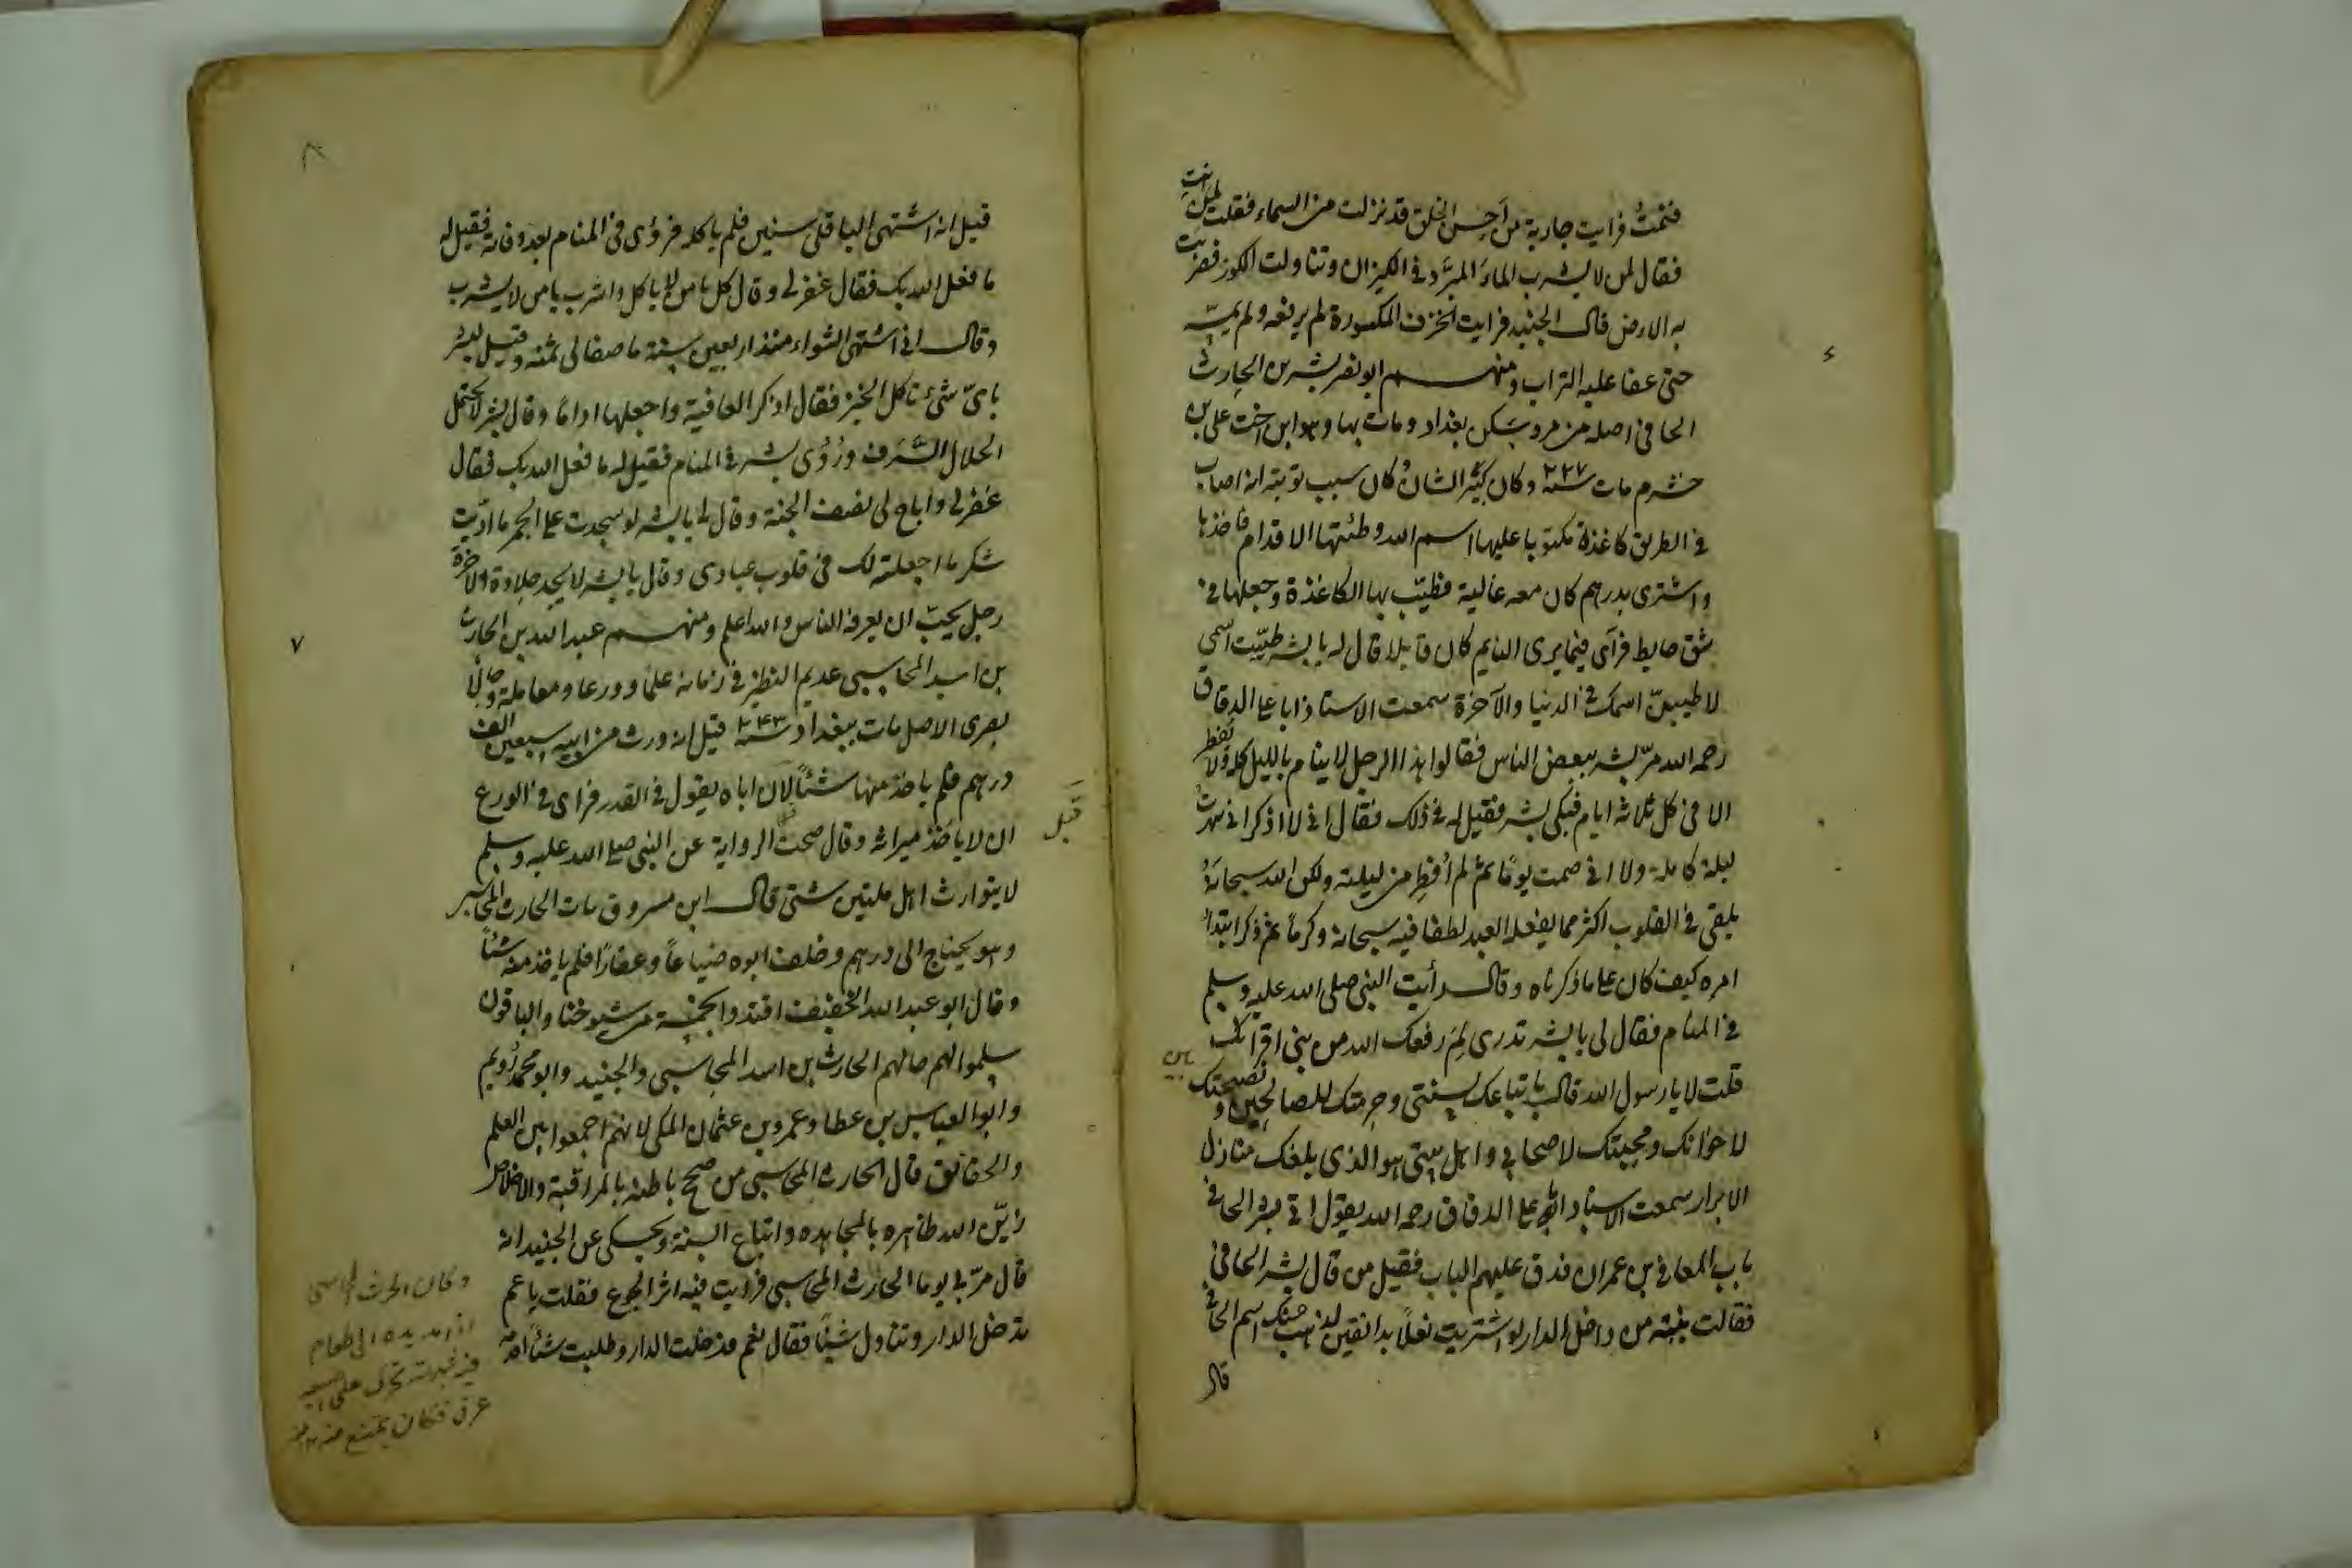 فنمتُ فرايت جارية من احسن الخلق قد نزلت من السماء فقلت لمن انتِ
فقال لمن لا يشرب الماءَ المبرَّد في الكيزان وتناولت الكوز فضربت
به الارض قال الجنيد فرايت الخزف المكسورة لم يرفعه ولم يمسّه
حتى عفا عليه التراب ومنهم ابو نصر بشر بن الحارث
الحافى اصله من مرو سكن بغداد ومات بها وهو ابن اخت على بن
خشرم مات سنة ٢٢٧ وكان كبير الشان وكان سبب توبته انه اصاب
في الطريق كاغذة مكتوبا عليها اسم الله وطئتها الاقدام فاخذها
واشترى بدرهم كان معه غالية فطيّب بها الكاغذة وجعلها في
شق حايط فرآى فيما يرى النايم كان قايلا قال له يا بشر طيّبت اسمي
لاطيبنّ اسمك في الدنيا والآخرة سمعت الاستاذ ابا على الدقاق
رحمه الله مرّ بشر ببعض الناس فقالوا هذا الرجل لا ينام بالليل كله ولا يفطر
الا فى كل ثلاثه ايام فبكى بشر فقيل له في ذلك فقال انى لا اذكر انى سهرت
ليلة كاملة ولا انى صمت يومًا ثم لم اُفطِر من ليلته ولكن الله سبحانهُ
يلقى في القلوب اكثر مما يفعله العبد لطفا فيه سبحانه وكرماً ثم ذكر ابتداء
امره كيف كان على ما ذكرناه وقال رأيت النبي صلى الله عليه وسلم
في المنام فقال لى يا بشر تدرى لِمَ رفعك الله من بين اقرانك
قلت لا يا رسول الله قال باتباعك لسنتي وحرمتك للصالحين ونصيحتك
لاخوانك ومحبتك لاصحابي واهل بيتى هو الذى بلغك منازل
الابرار سمعت الاستاد ابا على الدقاق رحمه الله يقول اتى بشر الحافى
باب المعافى بن عمران فدق عليهم الباب فقيل من قال بشر الحافي
فقالت بنيّته من داخل الدار لو اشتريت نعلاً بدانقين لذهب عنك اسم الحافى
قال
قيل انه اشتهى الباقلى سنين فلم ياكله فرؤى فى المنام بعد وفاته فقيل له
ما فعل الله بك فقال غفر لى وقال كل يا من لا ياكل واشرب يا من لا يشرب
وقال انى اشتهى الشواء منذ اربعين سنة ما صفا لى ثمنه وقيل لبشر
باىّ شئ تاكل الخبز فقال اذكر العافية واجعلها اداماً وقال بشر لا يحتمل
الحلال السَّرَف ورُؤى بشر في المنام فقيل له ما فعل الله بك فقال
غفر لى واباح لى نصف الجنة وقال لى يا بشر لو سجدت على الجمر ما ادّيت
شكر ما جعلته لك فى قلوب عبادى وقال يا بشر لا يجد حلاوة الاخرة
رجل يحبّ ان يعرفه الناس والله اعلم ومنهم عبد الله بن الحارث
بن اسد المحاسبى عديم النظير في زمانه علماً وورعا ومعاملة وحالاً
بصرى الاصل مات ببغداد سنة ٢٤٣ قيل انه ورث من ابيه سبعين الف
درهم فلم ياخذ منها شئاً لان اباه يقول في القدر فراى في الورع
ان لا ياخذ ميراثه وقال صحت الرواية عن النبي صلى الله عليه وسلم
لا يتوارث اهل ملتين شتى قال ابن مسروق مات الحارث المحاسبى
وهو يحتاج الى درهم وخلف ابوه ضياعاً وعقاراً فلم ياخذ منه شئاً
وقال ابو عبد الله الخفيف اقتدوا بخمسة من شيوخنا والباقون
سلموا لهم حالهم الحارث بن اسد المحاسبى والجنيد وابو محمد رُويم
وابو العباس بن عطا وعمرو بن عثمان المكى لانهم اجمعوا بين العلم
والحقائق قال الحارث المحاسبى من صحح باطنه بالمراقبة والاخلاص
زيّن الله ظاهره بالمجاهده واتباع السنة ويحكى عن الجنيد انه
قال مرّ بى يوما الحارث المحاسبى فرايت فيه اثر الجوع فقلت يا عم
تدخل الدار وتناول شيئاً فقال نعم فدخلت الدار وطلبت شئاً اقدمه
قيل
وكان الحرث المحاسبى
اذا مد يده الى طعام
فيه شبهة تحرك على اصبعه
عرق فكان يمتنع منه
٧
٨